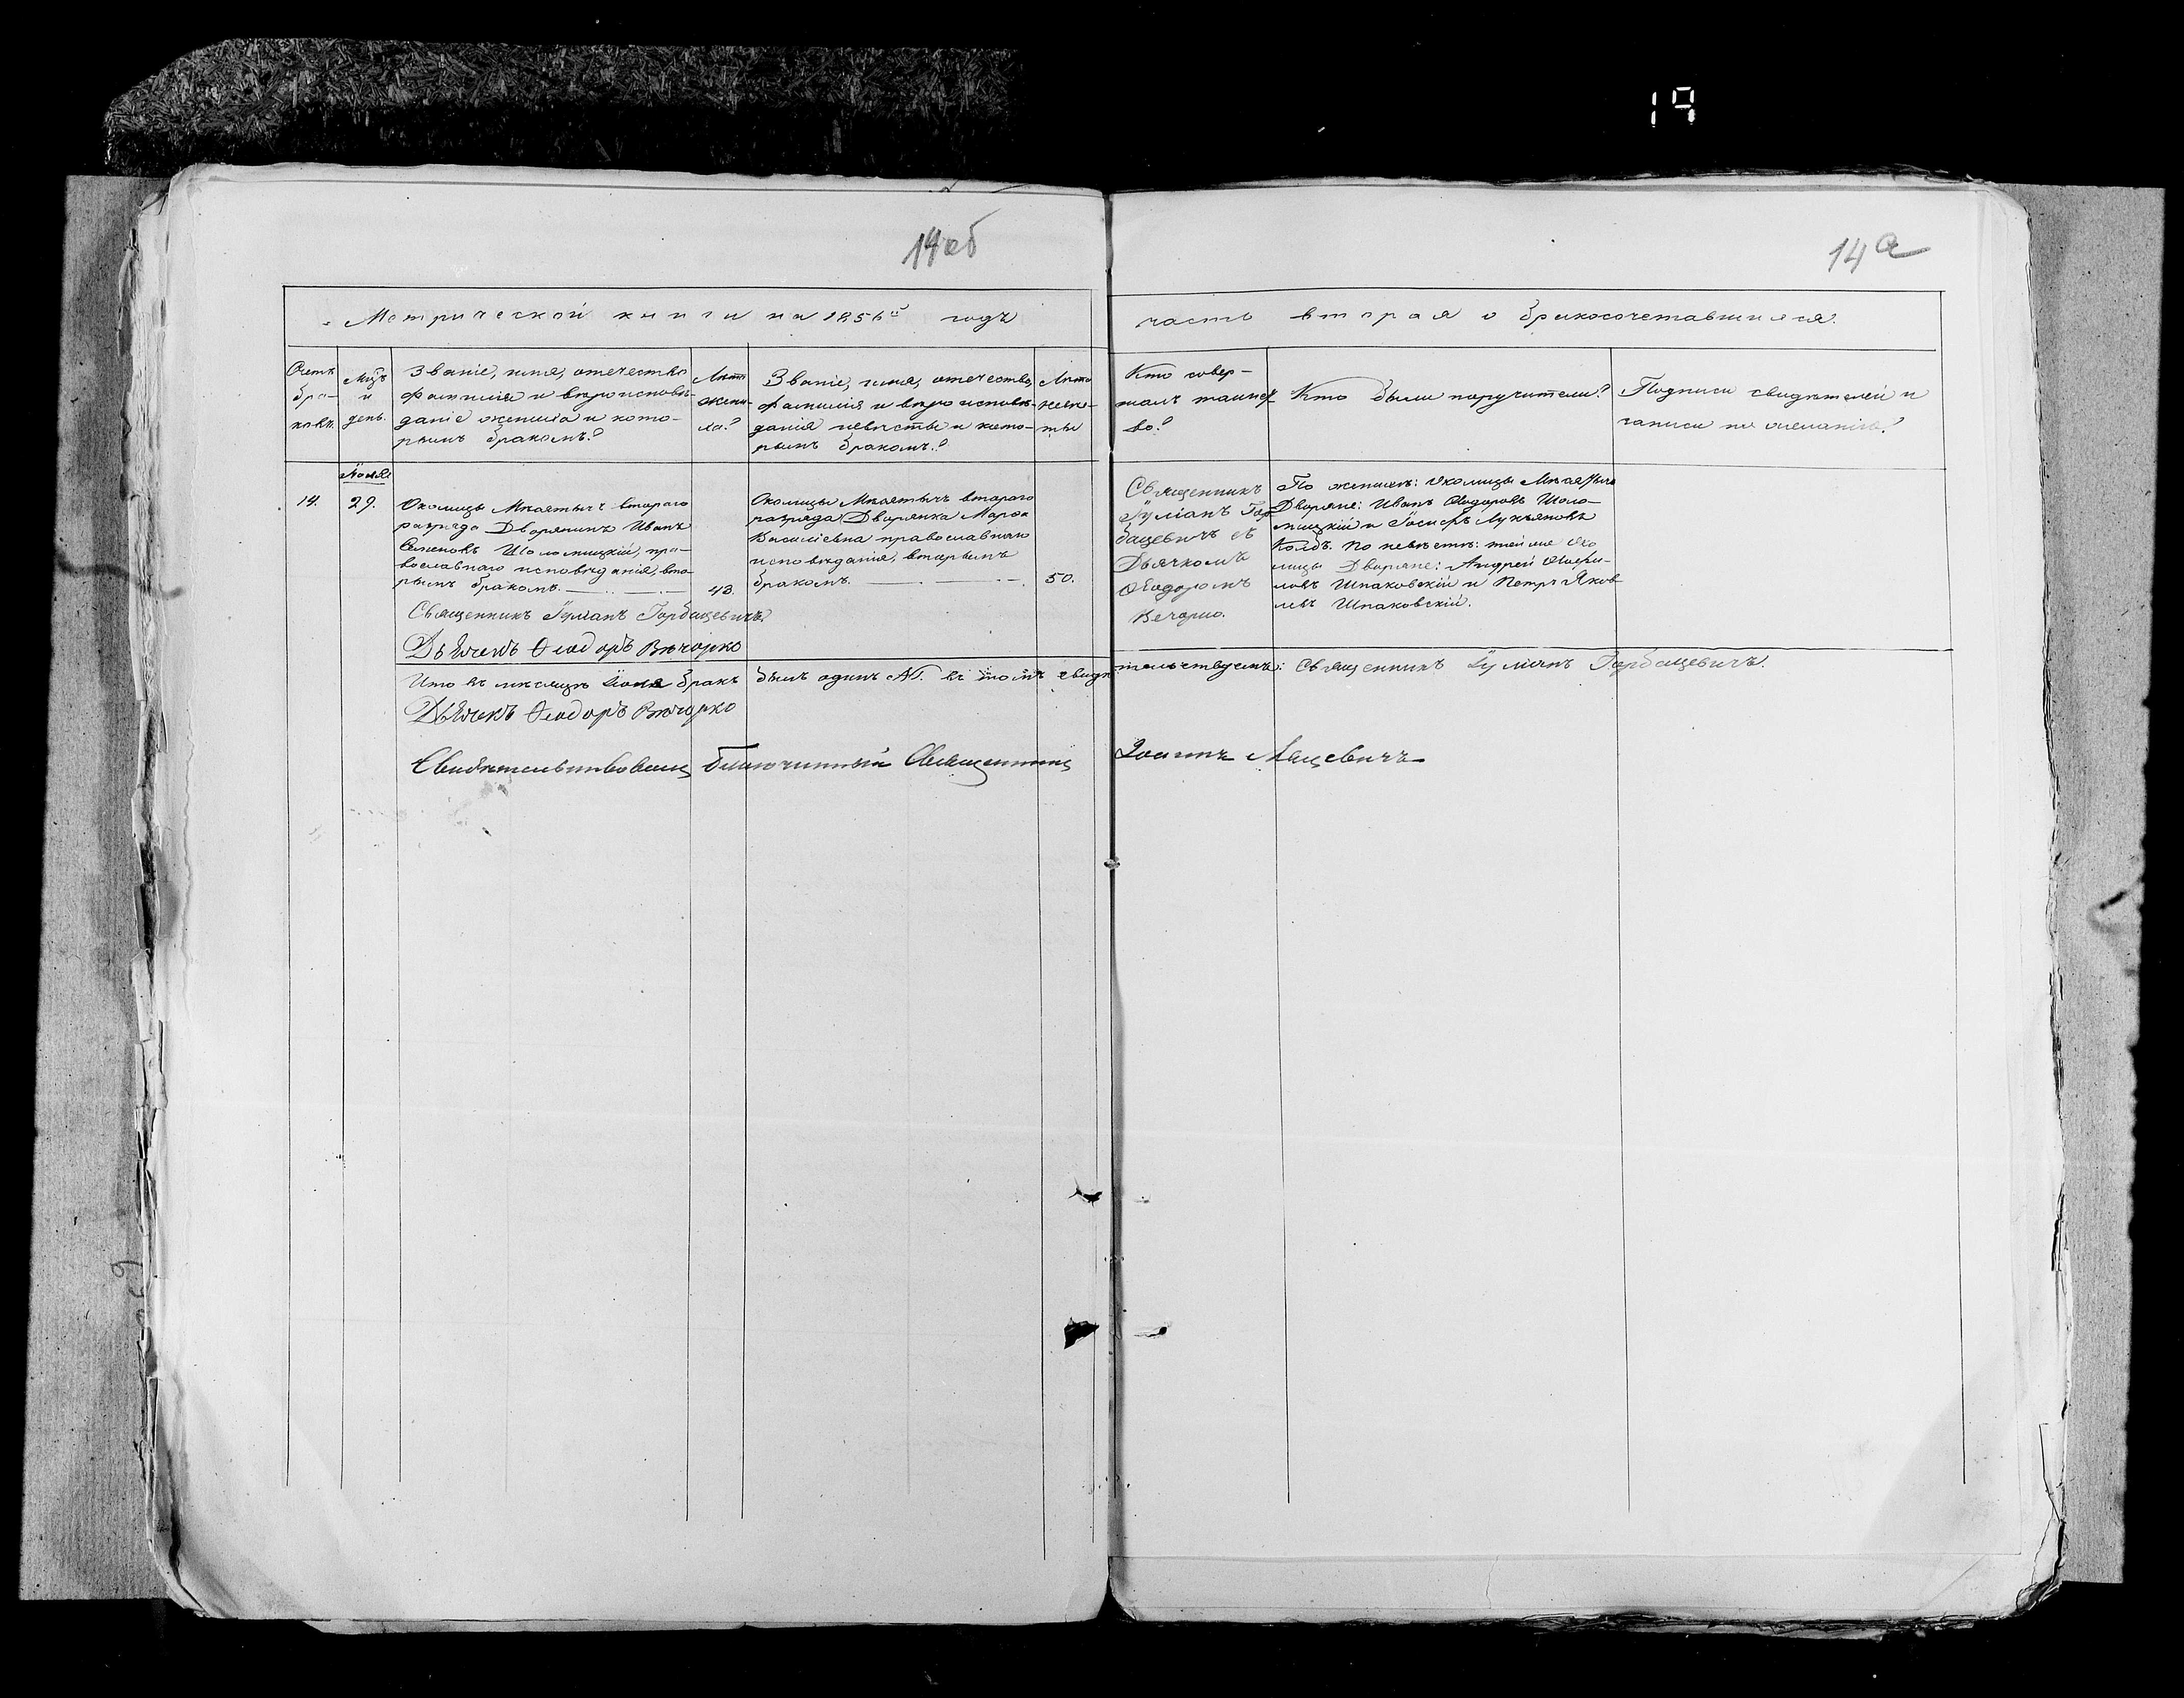 19
14 об
14 а
Метрической книги на 1856й годъ
часть вторая о бракосочетавшихся.
Счетъ
бра-
ковъ.
Мцъ
и
день.
Званіе, имя, отечество
фамилія и вѣроисповѣ-
даніе жениха и кото-
рымъ бракомъ?
Лѣта
жени-
ха?
Званіе, имя, отечество,
фамилія и вѣроисповѣ-
данія невѣсты и кото-
рымъ бракомъ?
Лѣта
невѣ-
сты
Кто совер-
шалъ таинст-
во?
Кто были поручители?
Подписи свидѣтелей и
записи по желанію?
14.
29.
Околицы Мкаятычъ втораго
разряда Дворянинъ Иванъ
Семеновъ Шоломицкій, пра-
вославнаго исповѣданія, вто-
рымъ бракомъ.
43.
Околицы Мкаятычъ втораго
разряда Дворянка Марѳа
Василіевна православнаго
исповѣданія, вторымъ
бракомъ.
50.
Священникъ
Іуліанъ Гор
бацевичъ съ
Дьячкомъ
Ѳеодоромъ
Вечорко.
По женихѣ: околицы
Дворяне: Иванъ Ѳеодоровъ Шоло-
мицкій и Іосифъ Лукьяновъ
Колбъ. По невѣстѣ: тойже око
лицы Дворяне: Андрей
Шпаковскій и Петръ Яков
левъ Шпаковскій.
Священникъ Іуліанъ Горбацевичъ.
Дьячекъ Ѳеодоръ Вѣчорко
Что въ мѣсяцѣ бракъ былъ одинъ въ томъ свидѣтельствуемъ: Священникъ Іуліанъ Горбацевичъ.
Дьячекъ Ѳеодоръ Вѣчорко
Свидѣтельствовалъ Благочинный Священникъ Іоаннъ Мацевичъ